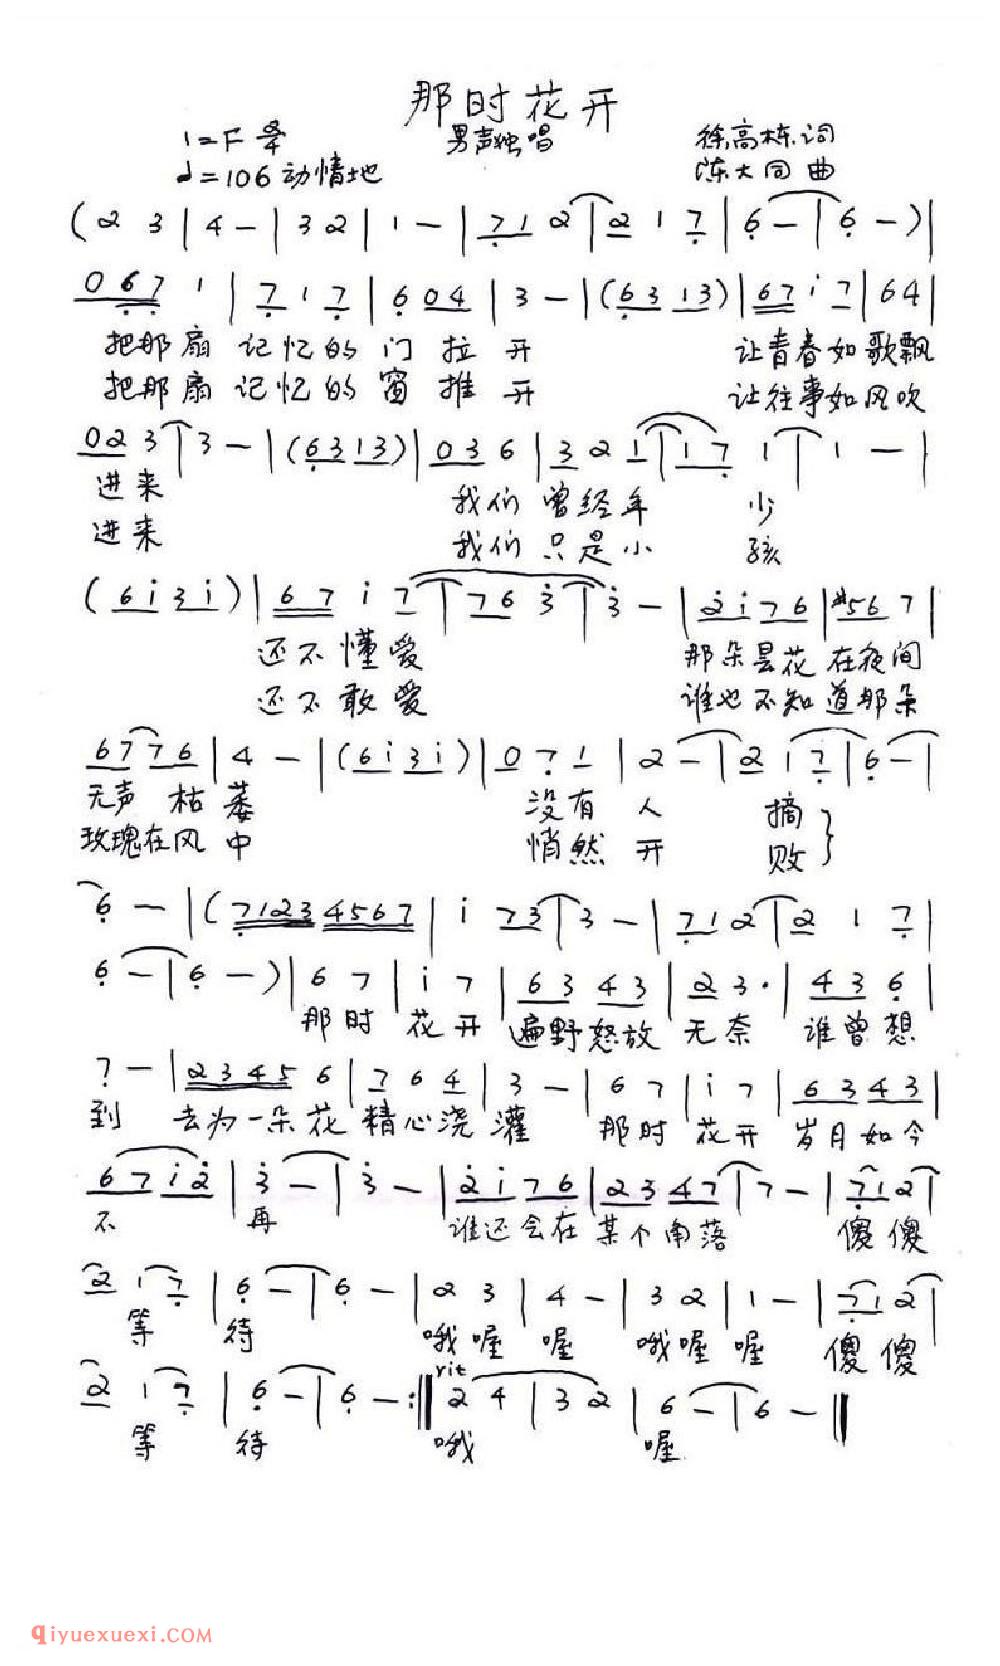 那时花开
1=F 2/4 男声独唱 徐高栋词
♩=106 动情地 陈大同 曲
(2 3 | 4 - | 3 2 | 1 - | 7 1 2 | 2 1 7 | 6 - | 6 - ) |
0 6 7 1 | 7 1 7 | 6 0 4 | 3 - | (6 3 1 3) | 6 7 i 7 | 6 4 |
把那扇 记忆的 门 拉 开 让青春如歌飘
把那扇 记忆的 窗 推 开 让往事如风吹
0 2 3 | 3 - | (6 3 1 3) | 0 3 6 | 3 2 1 | 1 7 1 | 1 - |
进来 我们 曾经年 少
进来 我们 只是小 孩
(6 i 3 i) | 6 7 i 7 | 7 6 3 | 3 - | 2 i 7 6 | #5 6 7 |
还不懂爱 那朵昙花 在夜间
还不敢爱 谁也不知道那朵
6 7 7 6 | 4 - | (6 i 3 i) | 0 7 1 | 2 - | 2 1 7 | 6 - |
无声 枯萎 没有 人 摘
玫瑰在风 中 悄然 开 败
6 - | (7 1 2 3 4 5 6 7 | i 7 3 | 3 - | 7 1 2 | 2 1 7 |
6 - | 6 - ) | 6 7 | i 7 | 6 3 4 3 | 2 3 · | 4 3 6 |
那时 花开 遍野怒放 无奈 谁曾想
7 - | 2 3 4 5 6 | 7 6 4 | 3 - | 6 7 | i 7 | 6 3 4 3 |
到 去为一朵花 精心浇 灌 那时 花开 岁月如今
6 7 i 2 | 3 - | 3 - | 2 i 7 6 | 2 3 4 7 | 7 - | 7 1 2 |
不 再 谁还会在 某个角落 傻傻
2 1 7 | 6 - | 6 - | 2 3 | 4 - | 3 2 | 1 - | 7 1 2 |
等 待 哦喔 喔 哦喔 喔 傻傻
rit
2 1 7 | 6 - | 6 - :‖ 2 4 | 3 2 | 6 - | 6 - ‖
等 待 哦 喔
qiyuexuexi.COM